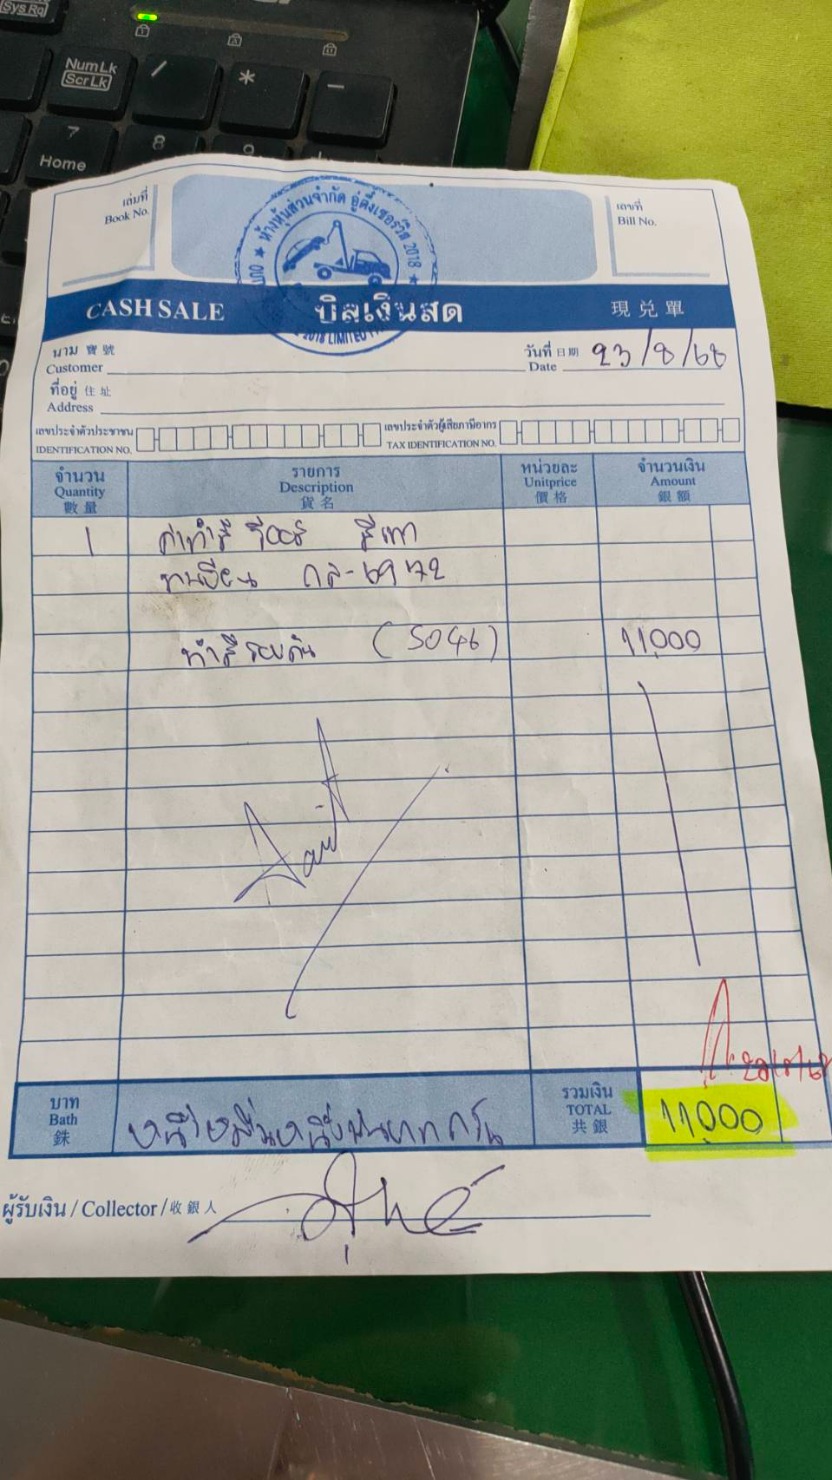 Sys Rq
Num Lk
Scr Lk
/
*
7
Home
8
9
เล่มที่
Book No.
เลขที่
Bill No.
ห้างหุ้นส่วนจำกัด อู่ตั้งเซอร์วิส 2018
CASH SALE บิลเงินสด 現兑單
นาม 寶號
Customer
วันที่ 日期
Date 23/8/68
ที่อยู่ 住址
Address
เลขประจำตัวประชาชน
IDENTIFICATION NO.
เลขประจำตัวผู้เสียภาษีอากร
TAX IDENTIFICATION NO.
จำนวน รายการ หน่วยละ จำนวนเงิน
Quantity Description Unitprice Amount
數量 貨名 價格 銀額
1 ค่าทำสี สีเทา
ทะเบียน
ทำสีรอบคัน (5046) 11,000
บาท
Bath
銖
หนึ่งหมื่นหนึ่งพันบาทถ้วน
รวมเงิน
TOTAL
共銀
11,000
ผู้รับเงิน / Collector / 收銀人